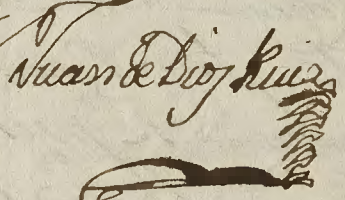 Juan de Dios Ruiz